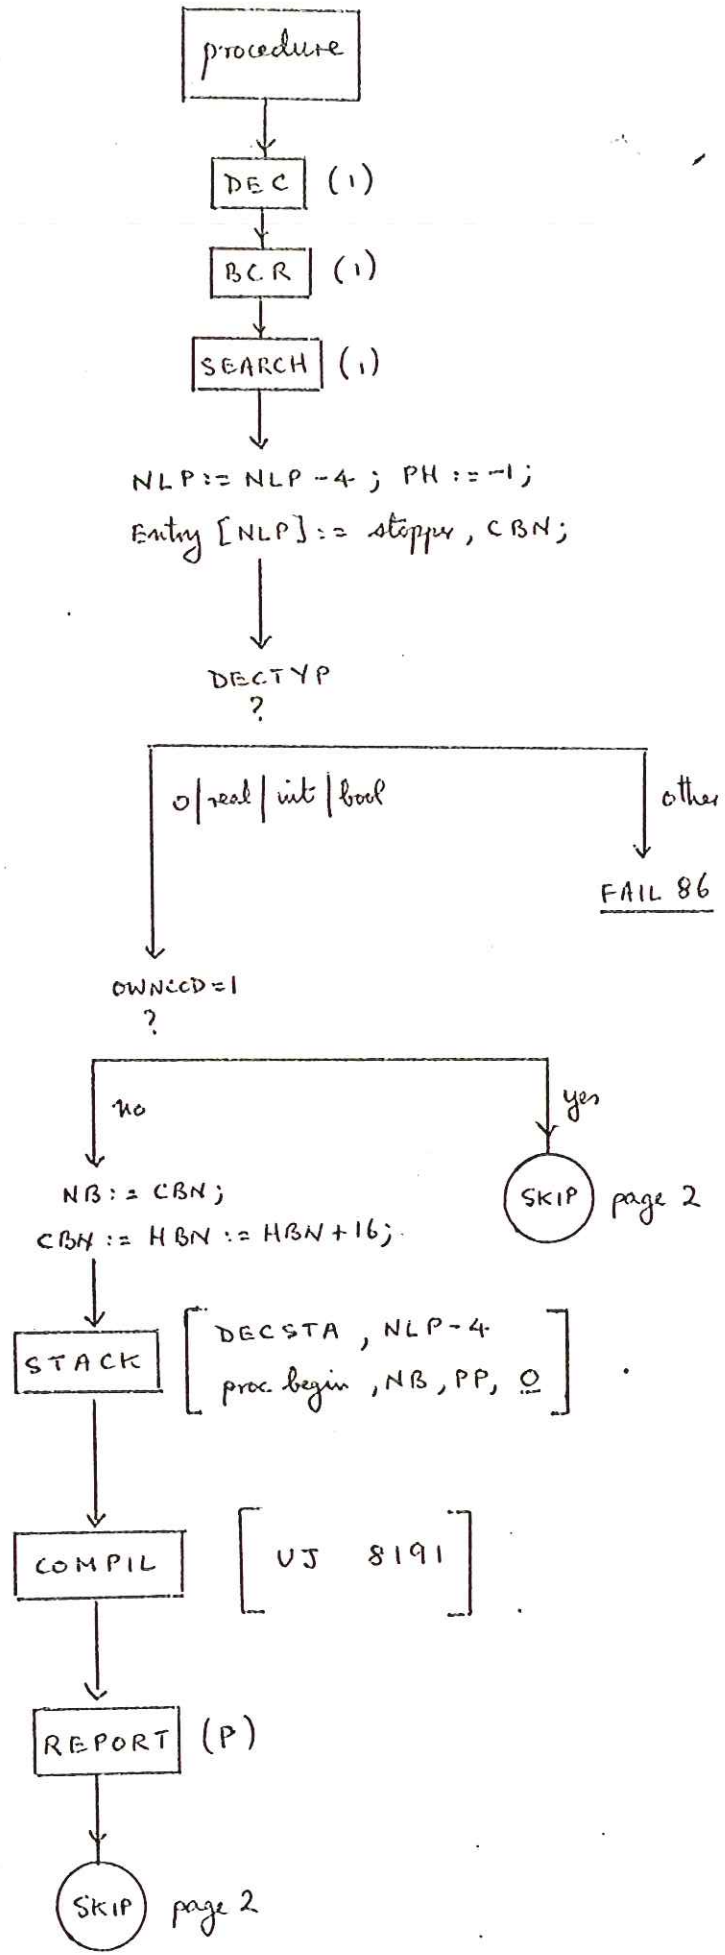 procedure
DEC (1)
BCR (1)
SEARCH (1)
NLP := NLP - 4 ; PH := -1 ;
Entry [NLP] := stopper , CBN ;
DECTYP
?
0 | real | int | bool
other
FAIL 86
OWNCOD = 1
?
no
yes
NB := CBN ;
SKIP page 2
CBN := HBN := HBN + 16 ;
DECSTA , NLP - 4
STACK
proc. begin , NB , PP , 0
COMPIL [ UJ 8191 ]
REPORT (P)
SKIP page 2